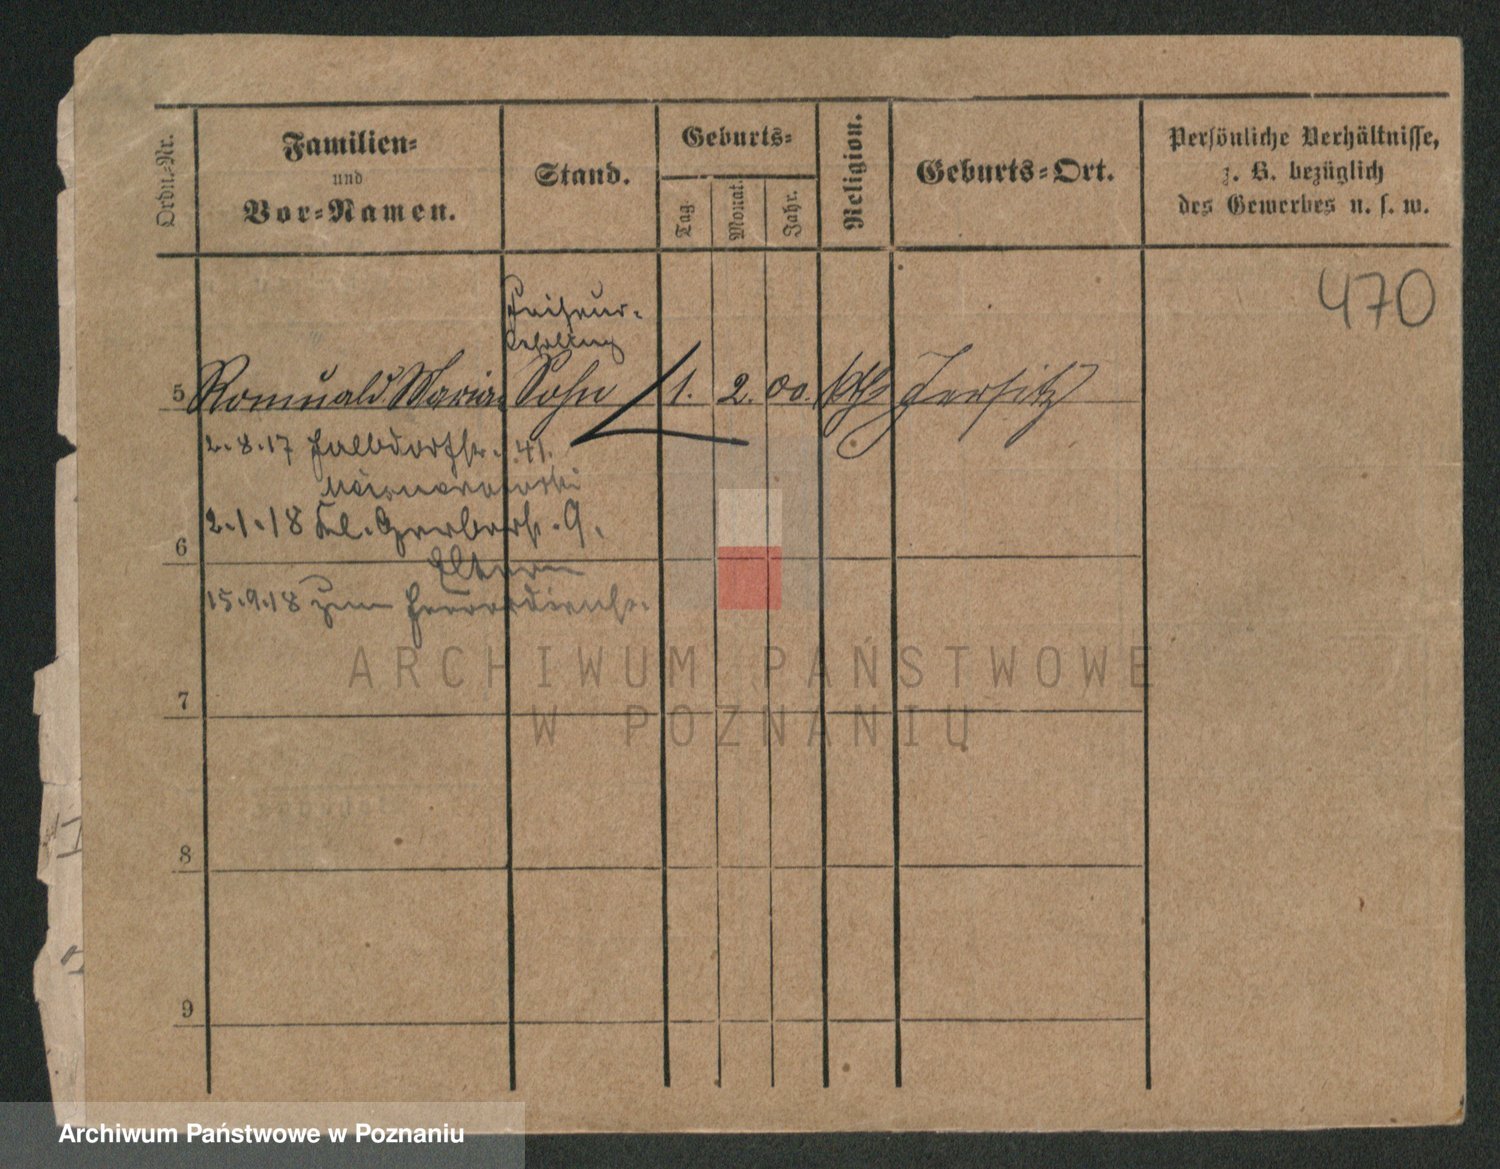 Ordn.-Nr.
Familien-
und
Vor-Namen.
Stand.
Geburts-
Tag.
Monat.
Jahr.
Religion.
Geburts-Ort.
Persönliche Verhältnisse,
z. B. bezüglich
des Gewerbes u. s. w.
470
Friseur-
Lehrling
5 Romuald Maria Sohn 1. 2. 00. kth Jersitz
2.8.17 Halbdorfstr. 41.
2.1.18 Kl. Gerberstr. 9.
6
Eltern
15.9.18 zum Heeresdienst.
7
8
9
ARCHIWUM PAŃSTWOWE
W POZNANIU
Archiwum Państwowe w Poznaniu